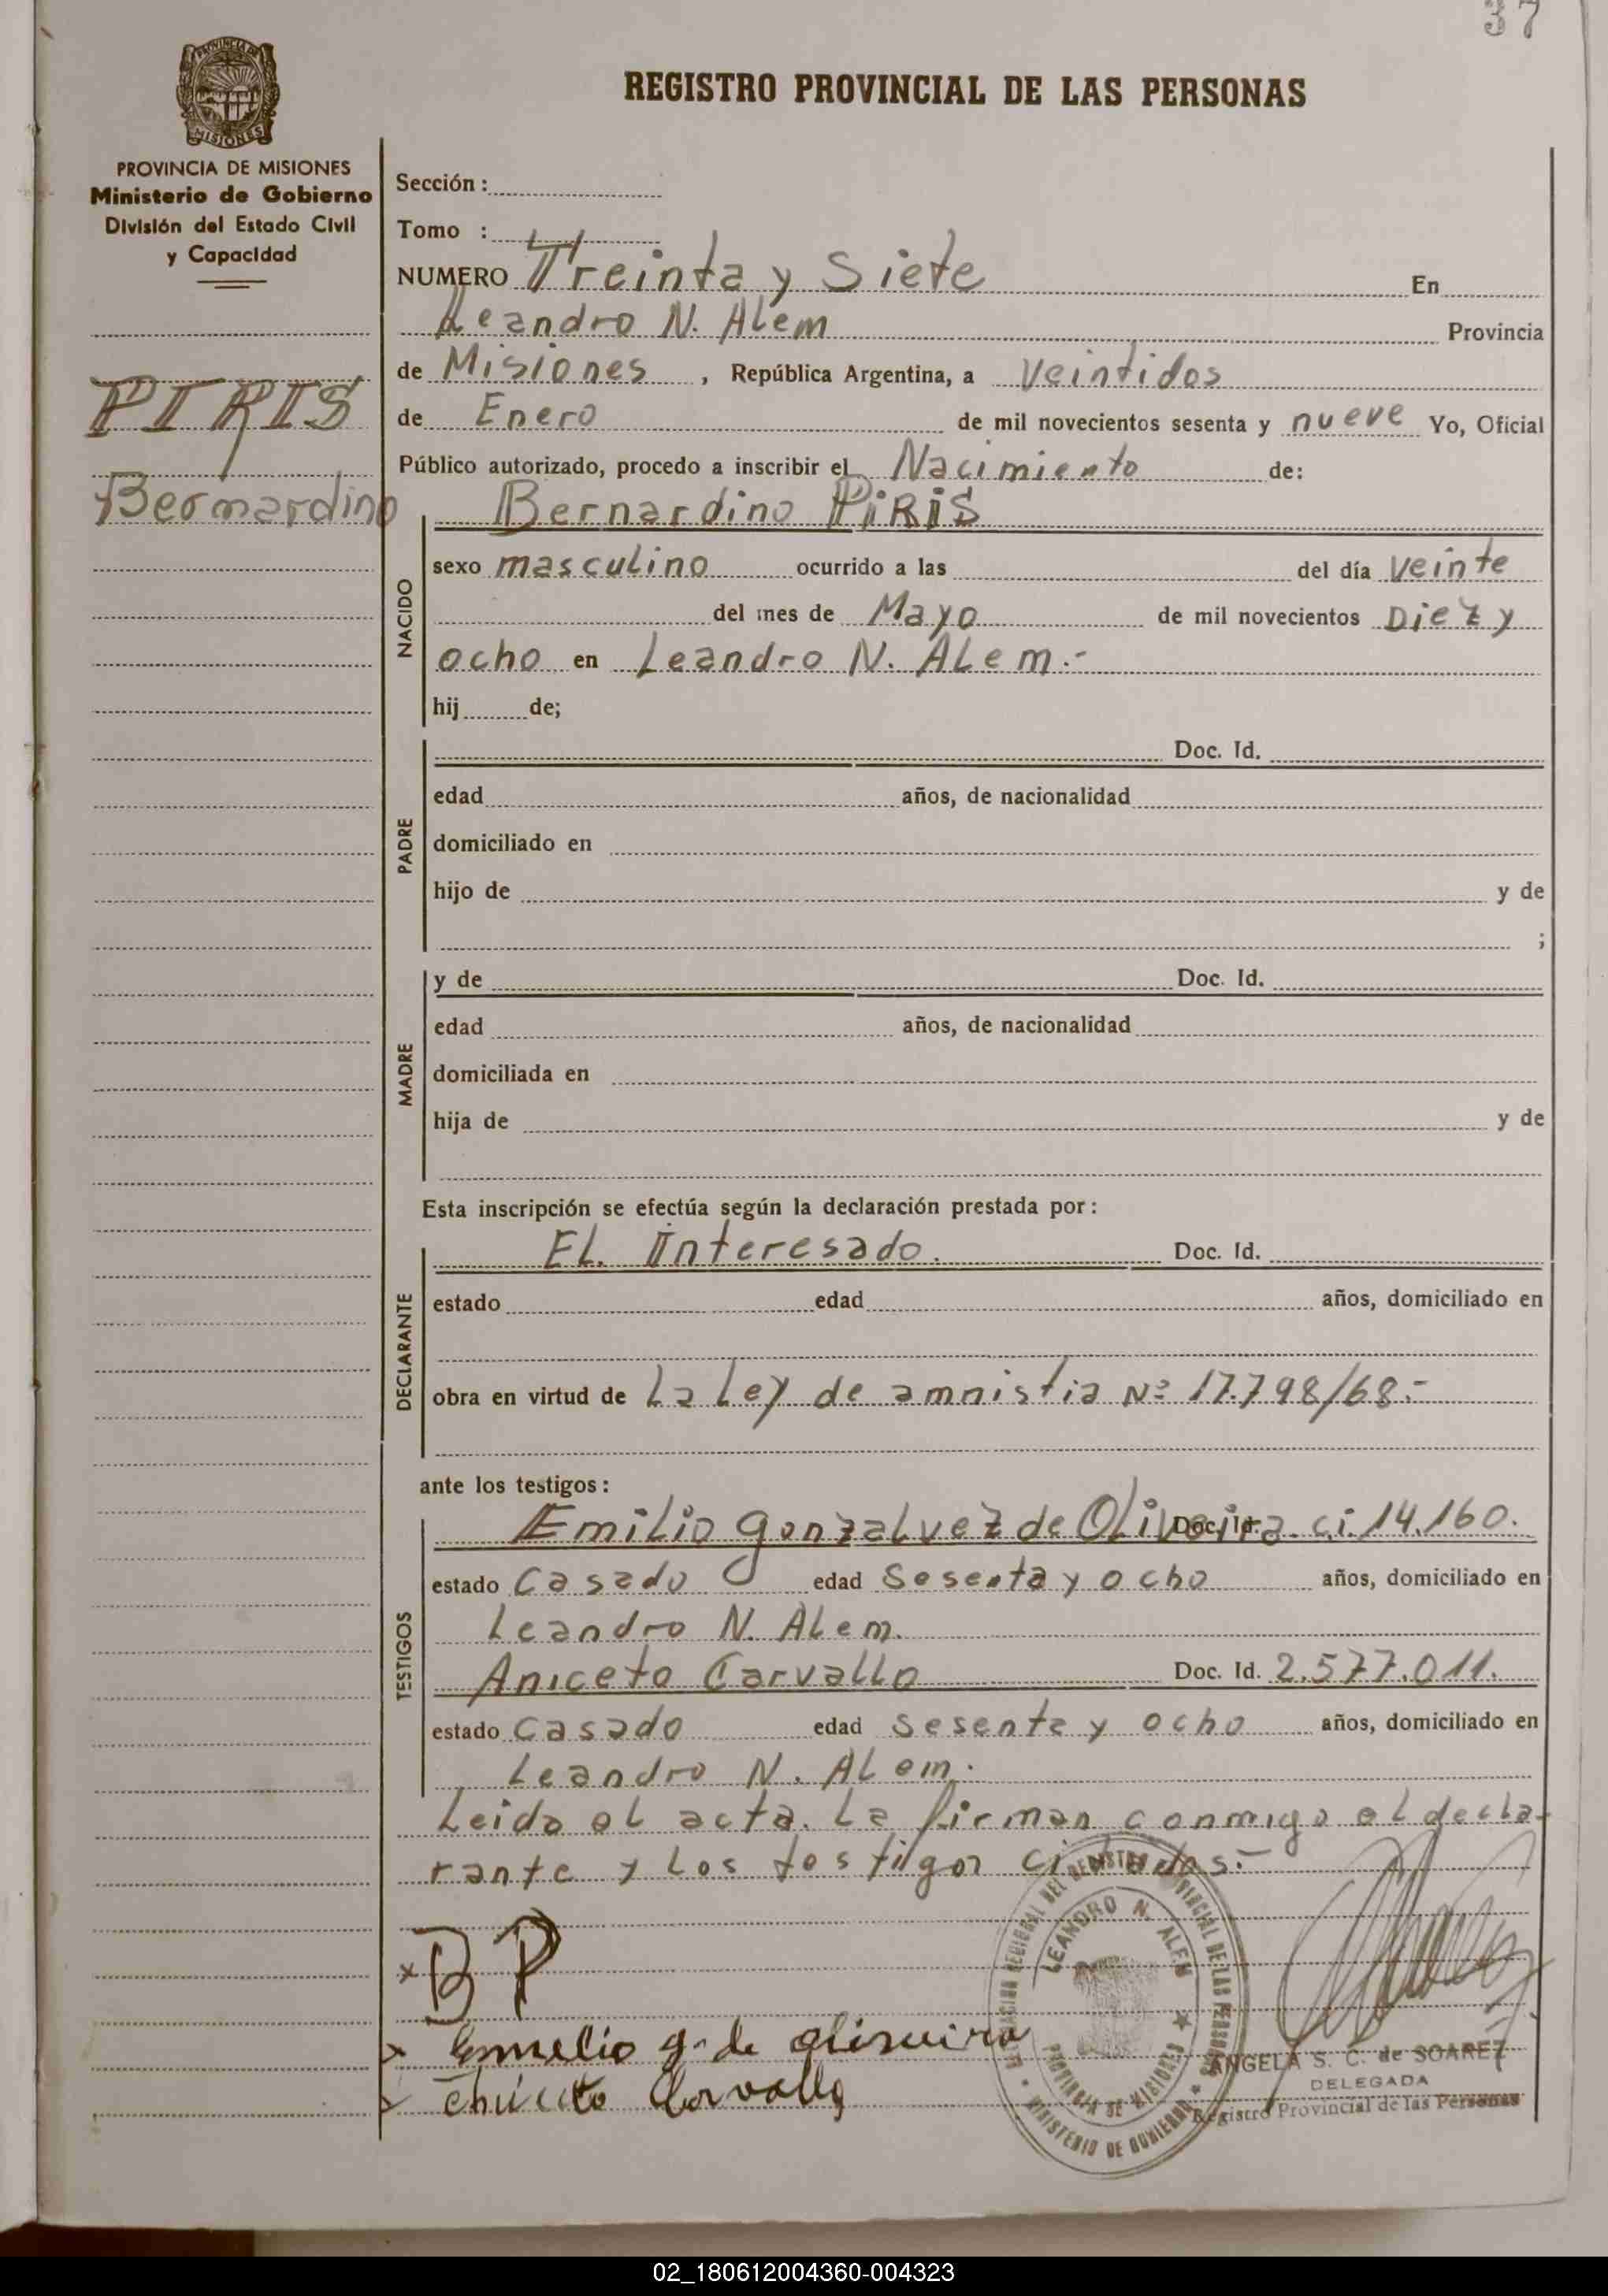 37
PROVINCIA DE MISIONES
REGISTRO PROVINCIAL DE LAS PERSONAS
PROVINCIA DE MISIONES
Ministerio de Gobierno
División del Estado Civil
y Capacidad
PIRIS
Bernardino
Sección :
Tomo :
NUMERO Treinta y Siete En
Leandro N. Alem Provincia
de Misiones , República Argentina, a Veintidos
de Enero de mil novecientos sesenta y nueve Yo, Oficial
Público autorizado, procedo a inscribir el Nacimiento de:
Bernardino PIRIS
NACIDO
sexo masculino ocurrido a las del día veinte
del mes de Mayo de mil novecientos Diez y
ocho en Leandro N. Alem.-
hij de;
PADRE
Doc. Id.
edad años, de nacionalidad
domiciliado en
hijo de y de
;
MADRE
y de Doc. Id.
edad años, de nacionalidad
domiciliada en
hija de y de
Esta inscripción se efectúa según la declaración prestada por :
DECLARANTE
EL. Interesado. Doc. Id.
estado edad años, domiciliado en
obra en virtud de La Ley de amnistia Nº 17.798/68.-
ante los testigos :
TESTIGOS
Emilio gonzalvez de Oliveira Doc. Id. ci. 14.160.
estado Casado edad Sesenta y ocho años, domiciliado en
Leandro N. Alem.
Aniceto Carvallo Doc. Id. 2.577.011.
estado Casado edad Sesenta y ocho años, domiciliado en
Leandro N. Alem.
Leida el acta. La firman conmigo el decla-
rante y Los testigos citados.-
x B P
Emelio g. de oliveira
Carvallo
LEANDRO N. ALEM
PROVINCIA DE MISIONES
MINISTERIO DE GOBIERNO
ANGELA S. C. de SOAREZ
DELEGADA
Registro Provincial de las Personas
02_180612004360-004323